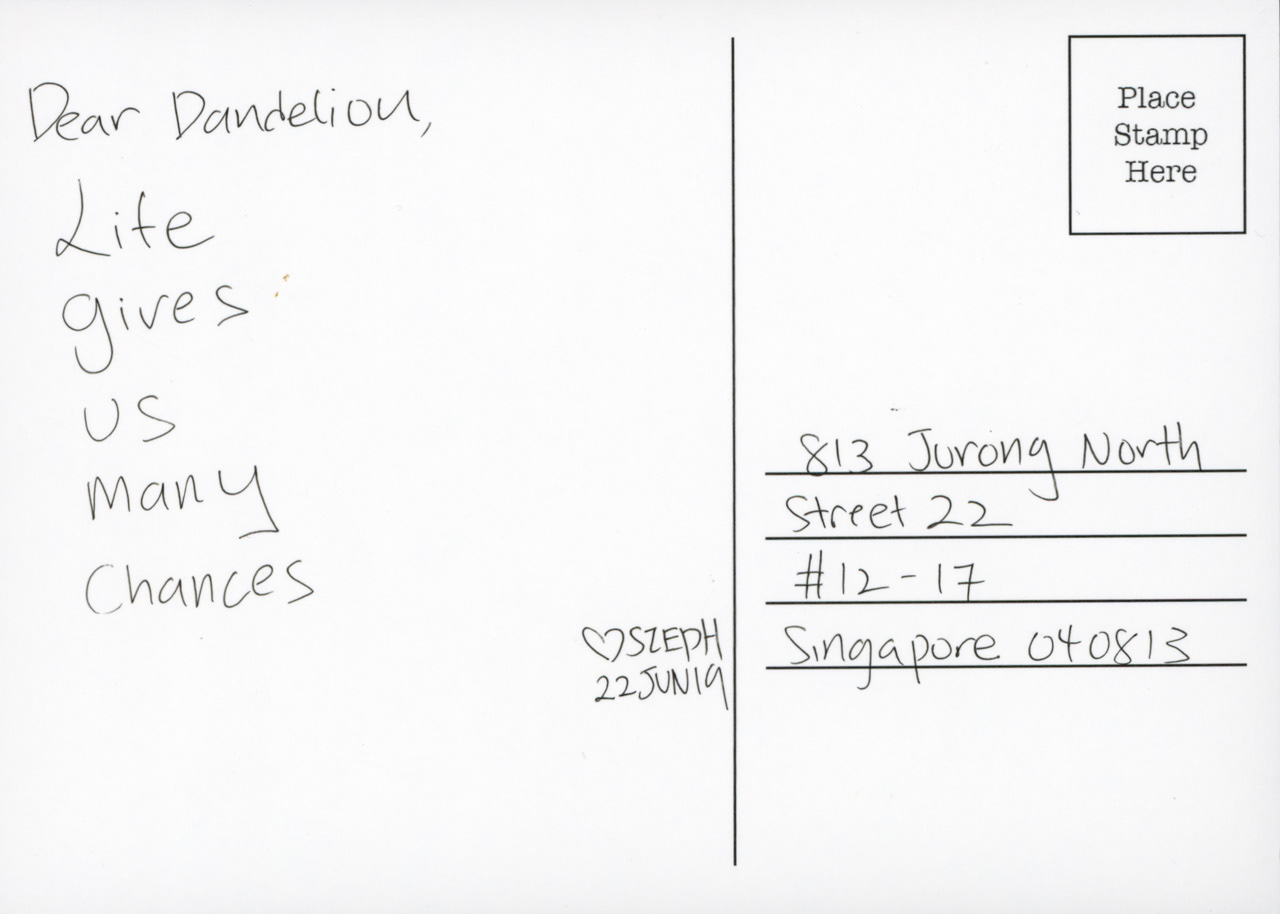 Dear Dandelion,
Life
gives
us
many
Chances
♡SZEPH
22JUN19
Place
Stamp
Here
813 Jurong North
Street 22
#12-17
Singapore 040813